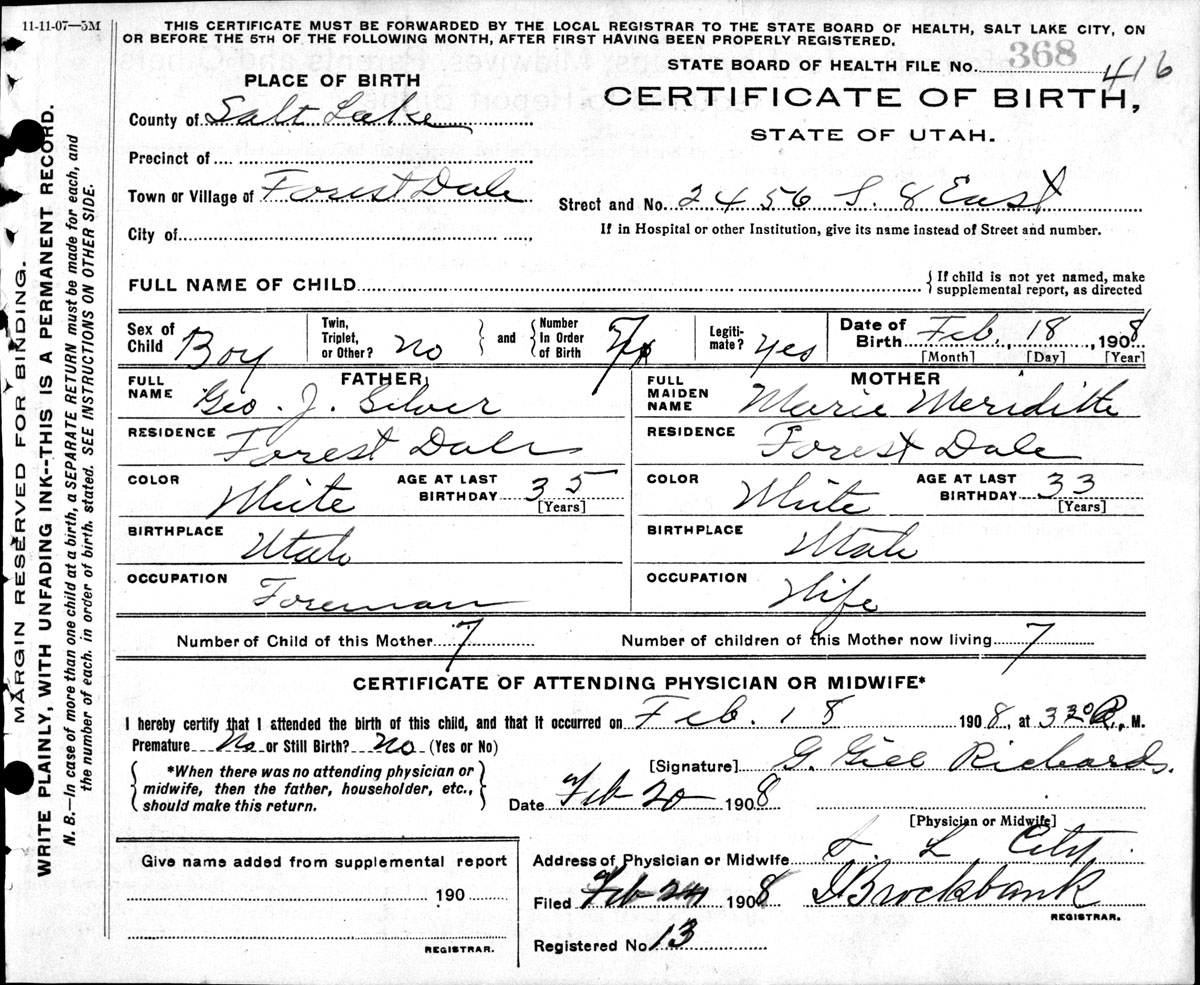 11-11-07—5M
THIS CERTIFICATE MUST BE FORWARDED BY THE LOCAL REGISTRAR TO THE STATE BOARD OF HEALTH, SALT LAKE CITY, ON
OR BEFORE THE 5TH OF THE FOLLOWING MONTH, AFTER FIRST HAVING BEEN PROPERLY REGISTERED.
STATE BOARD OF HEALTH FILE NO. 368 416
PLACE OF BIRTH
CERTIFICATE OF BIRTH,
STATE OF UTAH.
County of Salt Lake
Precinct of
Town or Village of Forest Dale
Street and No. 2456 S. 8 East
City of
If in Hospital or other Institution, give its name instead of Street and number.
FULL NAME OF CHILD
{If child is not yet named, make
supplemental report, as directed
Sex of Child Boy
Twin, Triplet, or Other? No } and { Number In Order of Birth
Legitimate? Yes
Date of Birth Feb. 18, 1908
[Month] [Day] [Year]
FATHER
FULL NAME Geo. J. Silver
MOTHER
FULL MAIDEN NAME Marie Meriditte
RESIDENCE Forest Dale
RESIDENCE Forest Dale
COLOR White AGE AT LAST BIRTHDAY 35 [Years]
COLOR White AGE AT LAST BIRTHDAY 33 [Years]
BIRTHPLACE Utah
BIRTHPLACE Utah
OCCUPATION Foreman
OCCUPATION Wife
Number of Child of this Mother 7 Number of children of this Mother now living 7
CERTIFICATE OF ATTENDING PHYSICIAN OR MIDWIFE*
I hereby certify that I attended the birth of this child, and that it occurred on Feb. 18 1908, at 3 30 P. M.
Premature No or Still Birth? No (Yes or No)
{*When there was no attending physician or
midwife, then the father, householder, etc.,
should make this return.}
[Signature] G. Gill Richards.
Date Feb 20 1908
[Physician or Midwife]
Address of Physician or Midwife S. L City
Filed Feb 24 1908 Brockbank
REGISTRAR.
Registered No 13
Give name added from supplemental report
190
REGISTRAR.
MARGIN RESERVED FOR BINDING.
WRITE PLAINLY, WITH UNFADING INK--THIS IS A PERMANENT RECORD.
N. B.—In case of more than one child at a birth, a SEPARATE RETURN must be made for each, and
the number of each. in order of birth. stated. SEE INSTRUCTIONS ON OTHER SIDE.